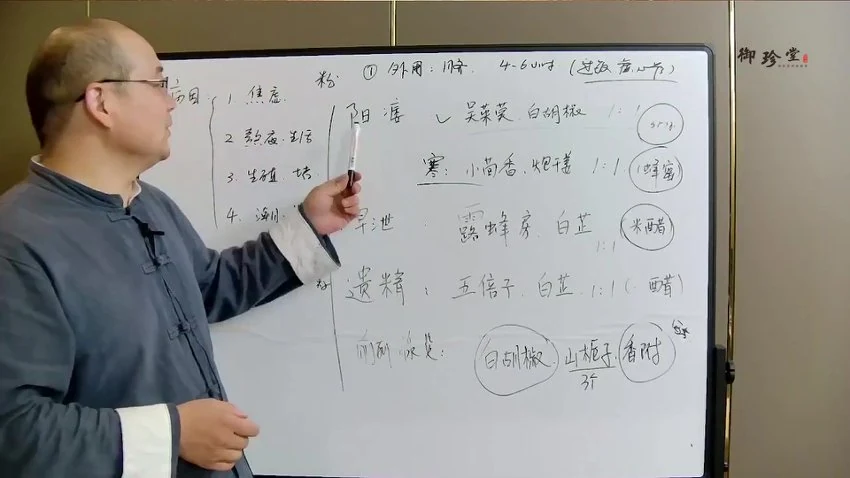 御珍堂
① 外用：脐 4-6小时 (过敏
病因
1. 焦虑
2
3. 生殖
4.
粉
阳痿 吴茱萸、白胡椒 1:1
寒：小茴香、炮干姜 1:1 (蜂蜜)
早泄：露蜂房、白芷 1:1 米醋
遗精：五倍子、白芷 1:1 (醋)
前列腺炎：白胡椒、山栀子、香附
3个